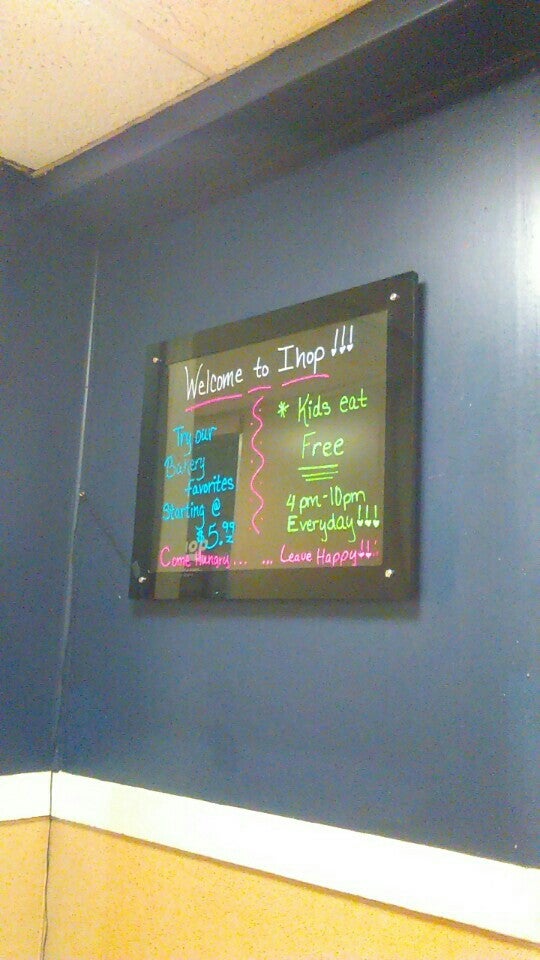 Welcome to Ihop!!!
Try our
Bakery
favorites
Starting @
$5.99
* Kids eat
Free
4pm-10pm
Everyday!!!
Come Hungry... ... Leave Happy!!!